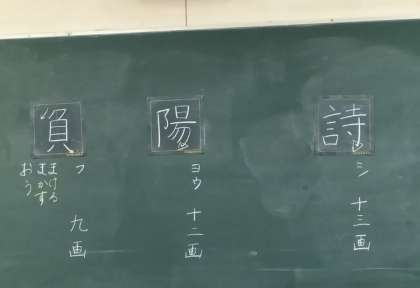 詩
シ 十三画
陽
ヨウ 十二画
負
フ 九画
まける
まかす
おう